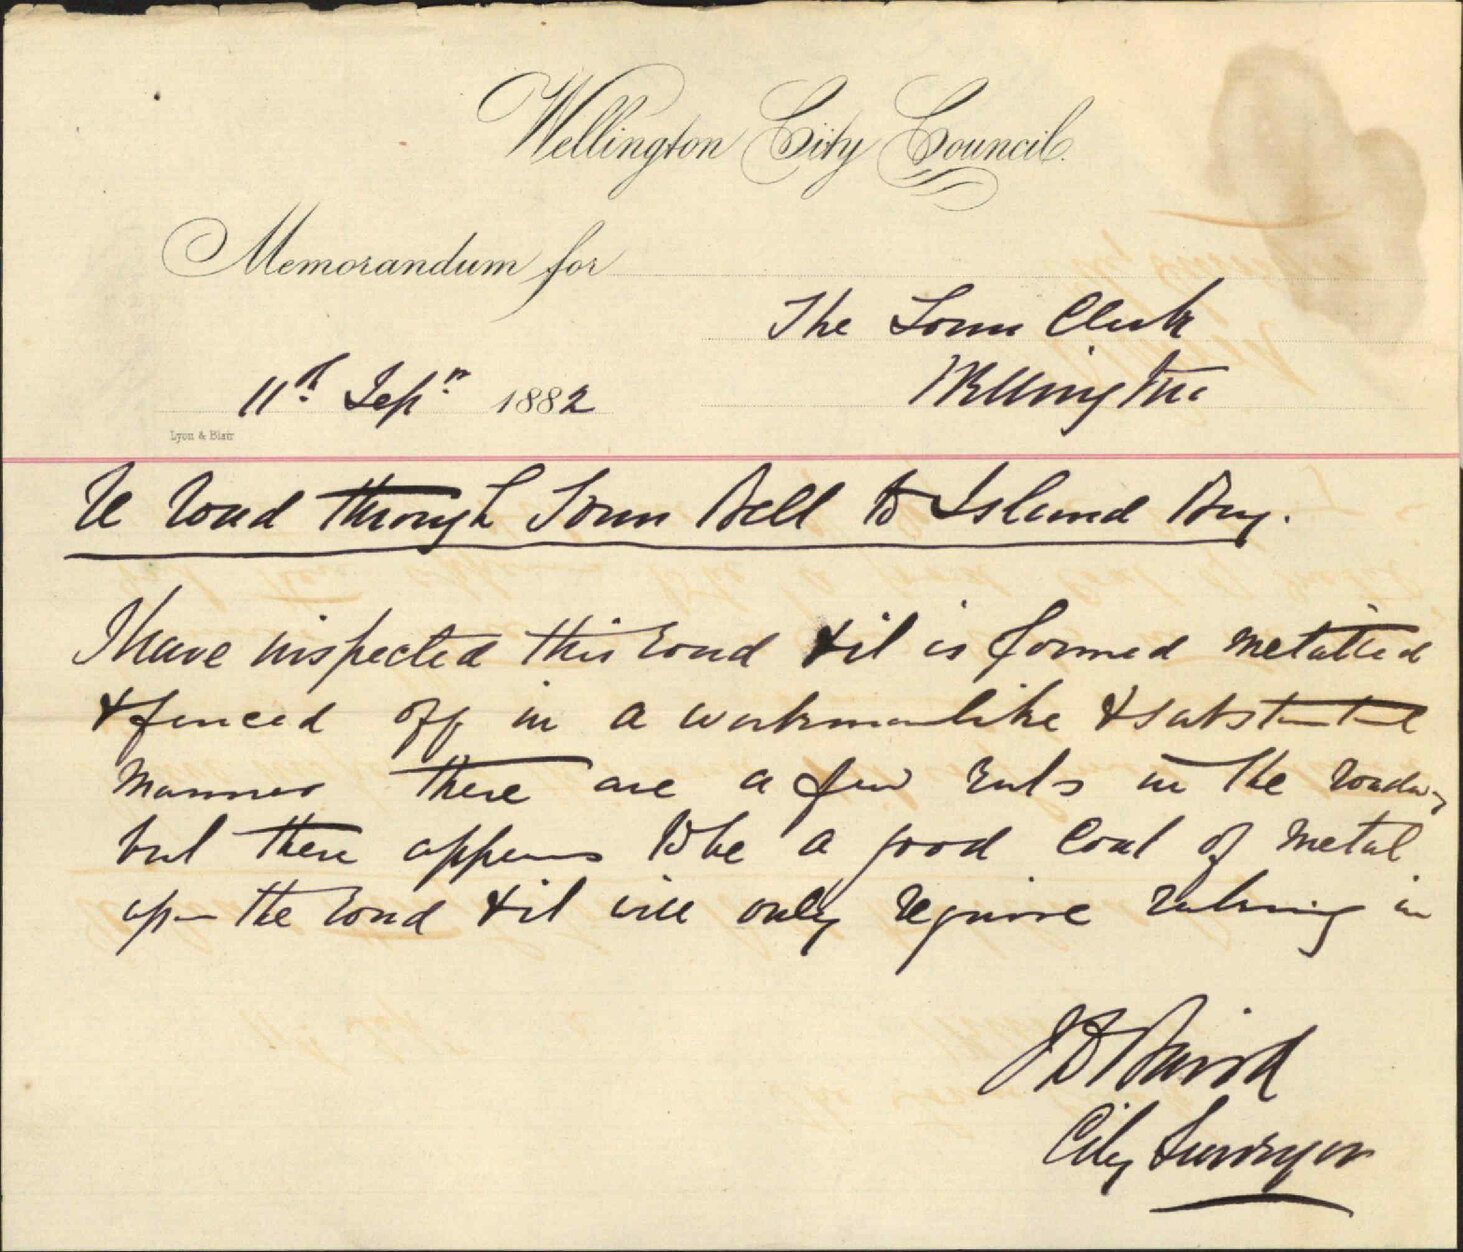 Wellington City Council.
Memorandum for
The Town Clerk
Wellington
11th Sepr. 1882
Lyon & Blair
Re Road through Town Belt to Island Bay.
I have inspected this road & it is formed metalled
& fenced off in a workmanlike & substantial
manner there are a few ruts in the roadway
but there appears to be a good coat of metal
upon the road & it will only require in
J D Baird
City Surveyor